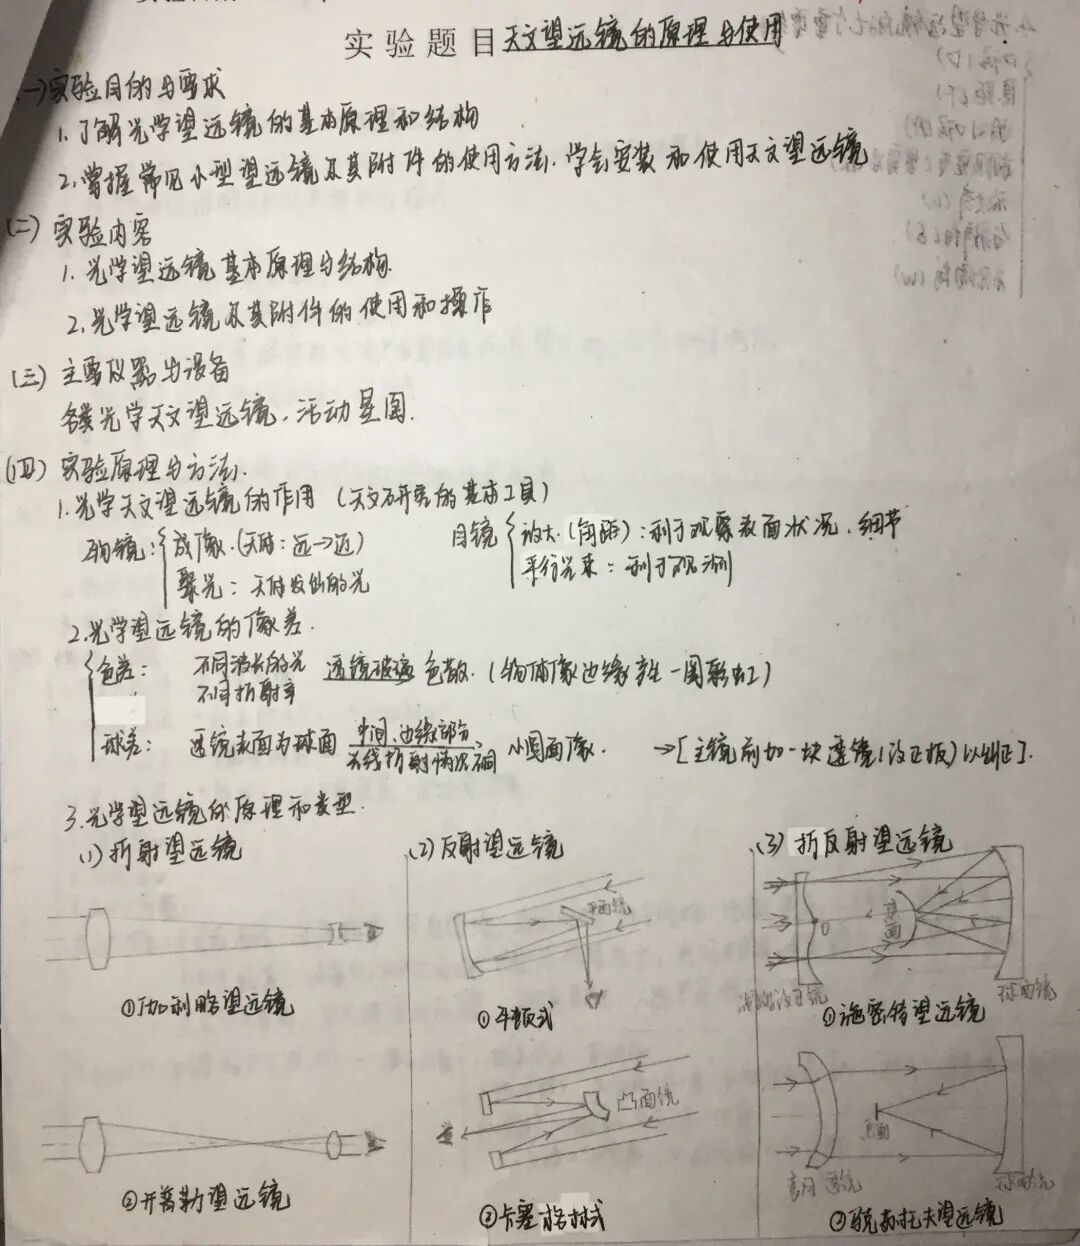 实验题目 天文望远镜的原理与使用
(一)实验目的与要求
1.了解光学望远镜的基本原理和结构
2.掌握常见小型望远镜及其附件的使用方法.学会安装和使用天文望远镜
(二)实验内容
1.光学望远镜基本原理与结构.
2.光学望远镜及其附件的使用和操作
(三)主要仪器与设备
各类光学天文望远镜.活动星图.
(四)实验原理与方法.
1.光学天文望远镜的作用(天文研究的基本工具)
物镜:{成像.(天体:远→近)
聚光:天体发出的光
目镜{放大.(角距):利于观察表面状况、细节
平行光束:利于观测
2.光学望远镜的像差.
{色差: 不同波长的光 透镜玻璃 色散.(物体像边缘产生一圈彩虹)
不同折射率
球差: 透镜表面为球面 中间、边缘部分 小圆面像. →[主镜前加一块透镜(改正板)以纠正].
光线折射情况不同
3.光学望远镜的原理和类型.
(1)折射望远镜
(2)反射望远镜
(3)折反射望远镜
平面镜
焦面
O
球面镜
①伽利略望远镜
①牛顿式
①施密特望远镜
凸面镜
焦面
弯月透镜
球面镜
②开普勒望远镜
②卡塞格林式
②马克苏托夫望远镜